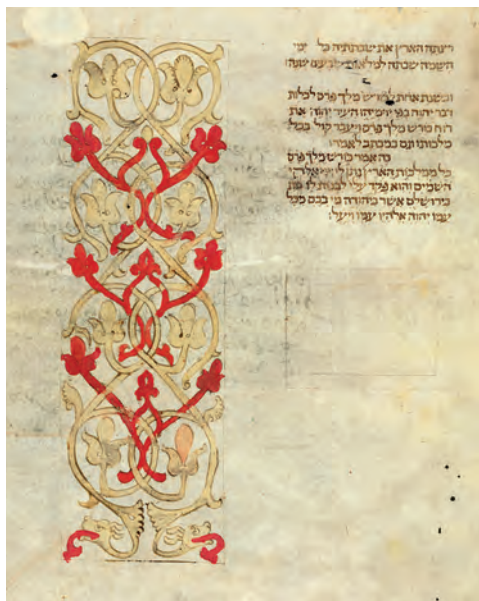 רצתה הארץ את שבתתיה כל ימי
השמה שבתה למלאות שבעים שנה׃
ובשנת אחת לכורש מלך פרס לכלות
דבר יהוה בפי ירמיהו העיר יהוה את
רוח כורש מלך פרס ויעבר קול בכל
מלכותו וגם במכתב לאמר׃
כה אמר כורש מלך פרס
כל ממלכות הארץ נתן לי יהוה אלהי
השמים והוא פקד עלי לבנות לו בית
בירושלם אשר ביהודה מי בכם מכל
עמו יהוה אלהיו עמו ויעל׃